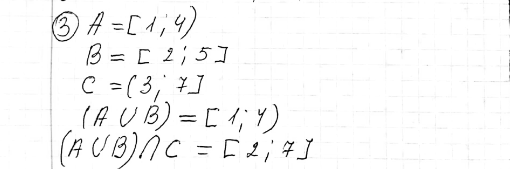 ③ A = [1; 4)
B = [2; 5]
C = (3; 7]
(A ∪ B) = [1; 4)
(A ∪ B) ∩ C = [2; 7]